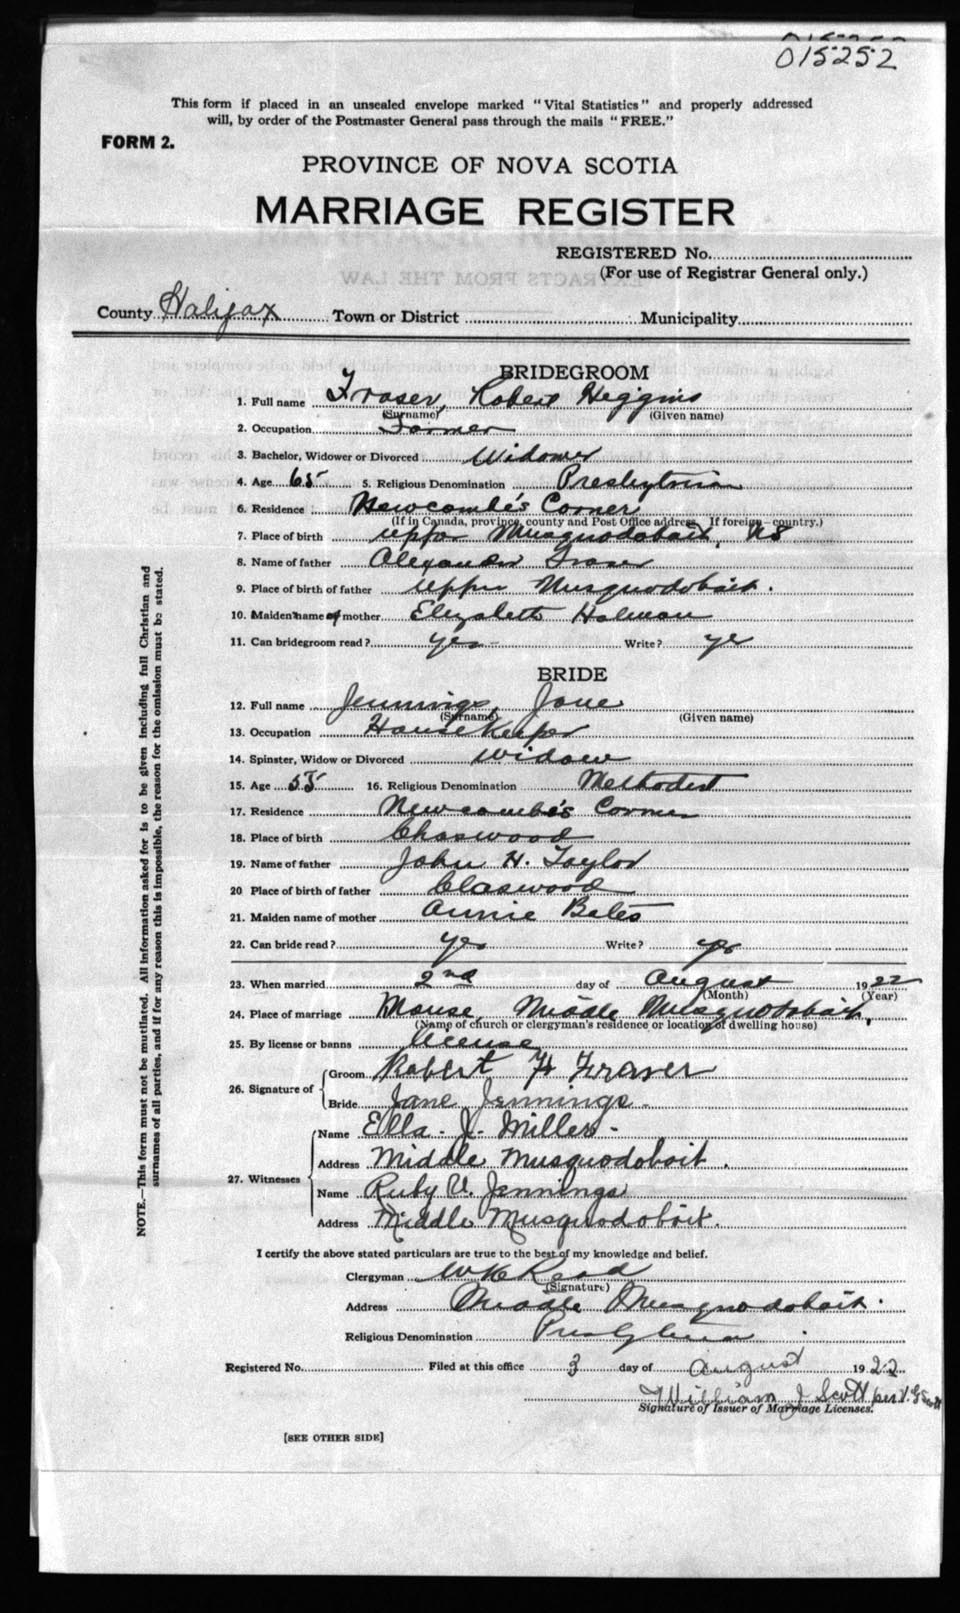 015252
This form if placed in an unsealed envelope marked "Vital Statistics" and properly addressed
will, by order of the Postmaster General pass through the mails "FREE."
FORM 2.
PROVINCE OF NOVA SCOTIA
MARRIAGE REGISTER
REGISTERED No.
(For use of Registrar General only.)
County Halifax Town or District Municipality
BRIDEGROOM
1. Full name Fraser, Robert Higgins
(Surname) (Given name)
2. Occupation Farmer
3. Bachelor, Widower or Divorced Widower
4. Age 65 5. Religious Denomination Presbyterian
6. Residence Newcombe's Corner
(If in Canada, province, county and Post Office address. If foreign—country.)
7. Place of birth Upper Musquodoboit, NS
8. Name of father Alexander Fraser
9. Place of birth of father Upper Musquodoboit.
10. Maiden name of mother Elizabeth Holman
11. Can bridegroom read? yes Write? yes
BRIDE
12. Full name Jennings, Jane
(Surname) (Given name)
13. Occupation House Keeper
14. Spinster, Widow or Divorced widow
15. Age 55 16. Religious Denomination Methodist
17. Residence Newcombe's Corner
18. Place of birth Chaswood
19. Name of father John H. Taylor
20 Place of birth of father Claswood
21. Maiden name of mother Annie Bates
22. Can bride read? yes Write? yes
23. When married 2nd day of August 1922
(Month) (Year)
24. Place of marriage Manse, Middle Musquodoboit,
(Name of church or clergyman's residence or location of dwelling house)
25. By license or banns license
26. Signature of Groom Robert H Fraser
Bride Jane Jennings.
27. Witnesses Name Ella. J. Miller.
Address Middle Musquodoboit.
Name Ruby V. Jennings
Address Middle Musquodoboit.
I certify the above stated particulars are true to the best of my knowledge and belief.
Clergyman W K Read
(Signature)
Address Middle Musquodoboit.
Religious Denomination Presbyterian
Registered No. Filed at this office 3 day of August 1922
William J Scott per
Signature of Issuer of Marriage Licenses.
[SEE OTHER SIDE]
NOTE.—This form must not be mutilated. All information asked for is to be given including full Christian and
surnames of all parties, and if for any reason this is impossible, the reason for the omission must be stated.